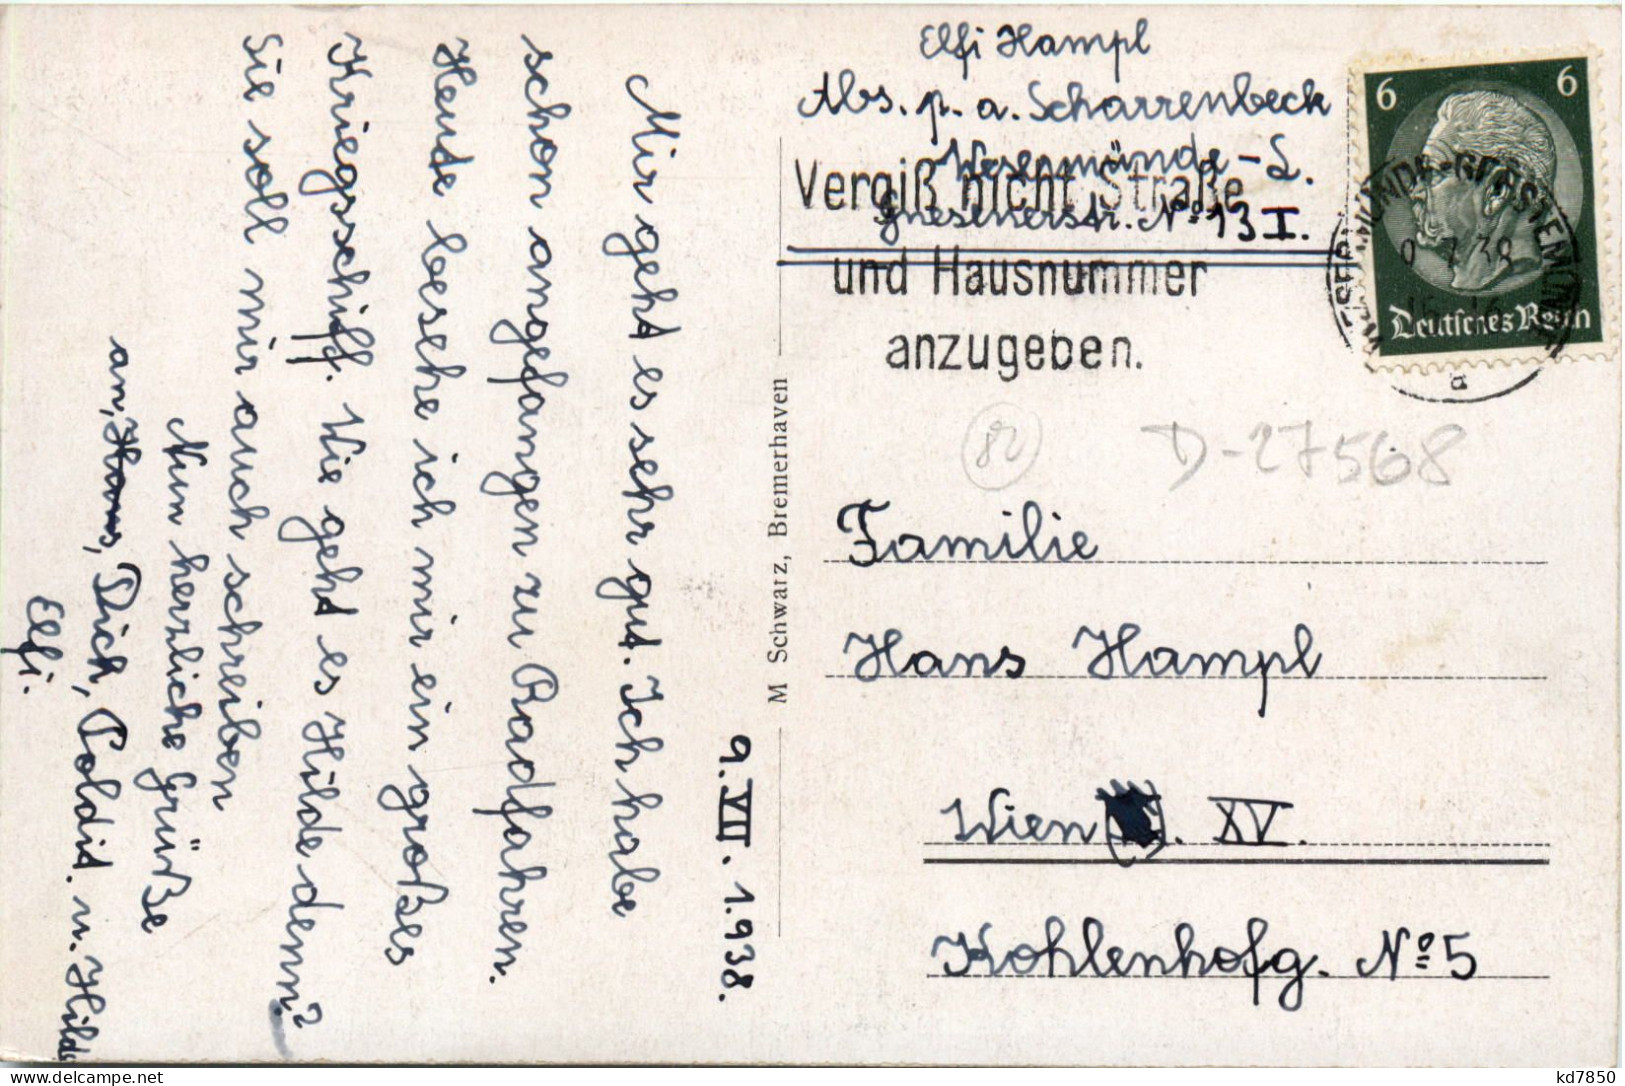 9.VII.1.938.
Mir geht es sehr gut. Ich habe
schon angefangen zu Radfahren.
Heute besehe ich mir ein großes
Kriegsschiff. Wie geht es Hilde denn?
Sie soll mir auch schreiben
Nun herzliche Grüße
an, Hans, Dich, Poldi. u. Hilde
Elfi.
M Schwarz, Bremerhaven
Elfi Hampl
Abs. p. a. Scharrenbeck
Wesermünde-L.
Gnesenerstr. No 13 I.
Vergiß nicht Straße
und Hausnummer
anzugeben.
6 6
Deutsches Reich
WESERMÜNDE-GEESTEMÜNDE
7.38
a
82
D-27568
Familie
Hans Hampl
Wien . XV.
Kohlenhofg. No 5
kd7850